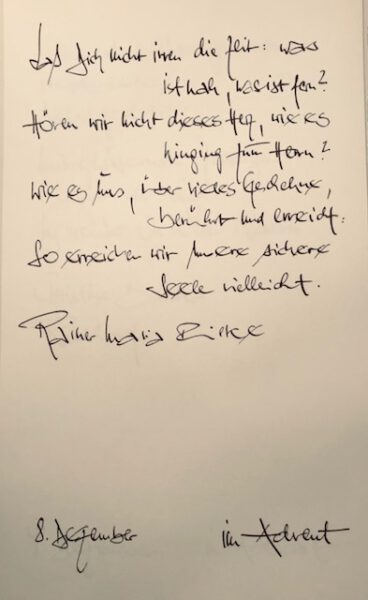 Laß dich nicht irren die Zeit: was
ist nah, was ist fern?
Hören wir nicht dieses Herz, wie es
hinging zum Herrn?
wie es uns, über vieles Gedehnte,
berührt und erreicht:
So erreichen wir unsere sichere
Seele vielleicht.
Rainer Maria Rilke
8. Dezember
im Advent